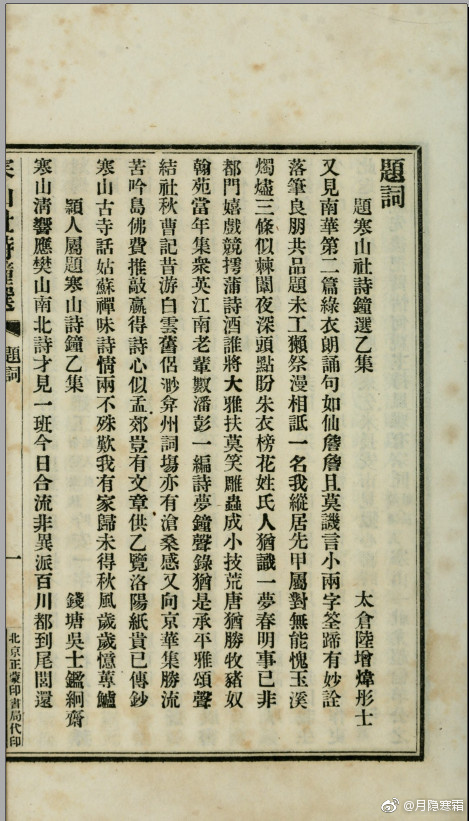 題詞
題寒山社詩鐘選乙集
太倉陸增煒彤士
又見南華第二篇綠衣朗誦句如仙詹詹且莫譏言小兩字筌蹄有妙詮
落筆良朋共品題未工獺祭漫相詆一名我縱居先甲屬對無能愧玉溪
燭燼三條似棘闈夜深頭點盼朱衣榜花姓氏人猶識一夢春明事已非
都門嬉戲競摴蒲詩酒誰將大雅扶莫笑雕蟲成小技荒唐猶勝牧豬奴
翰苑當年集衆英江南老輩數潘彭一編詩夢鐘聲錄猶是承平雅頌聲
結社秋曹記昔游白雲舊侶渺弇州詞塲亦有滄桑感又向京華集勝流
苦吟島佛費推敲贏得詩心似孟郊豈有文章供乙覽洛陽紙貴已傳鈔
寒山古寺話姑蘇禪味詩情兩不殊歎我有家歸未得秋風歲歲憶蓴鱸
穎人屬題寒山詩鐘乙集
錢塘吳士鑑絅齋
寒山清響應樊山南北詩才見一班今日合流非異派百川都到尾閭還
寒山社詩鐘選
題詞
一
北京正蒙印書局代印
@月隐寒霜